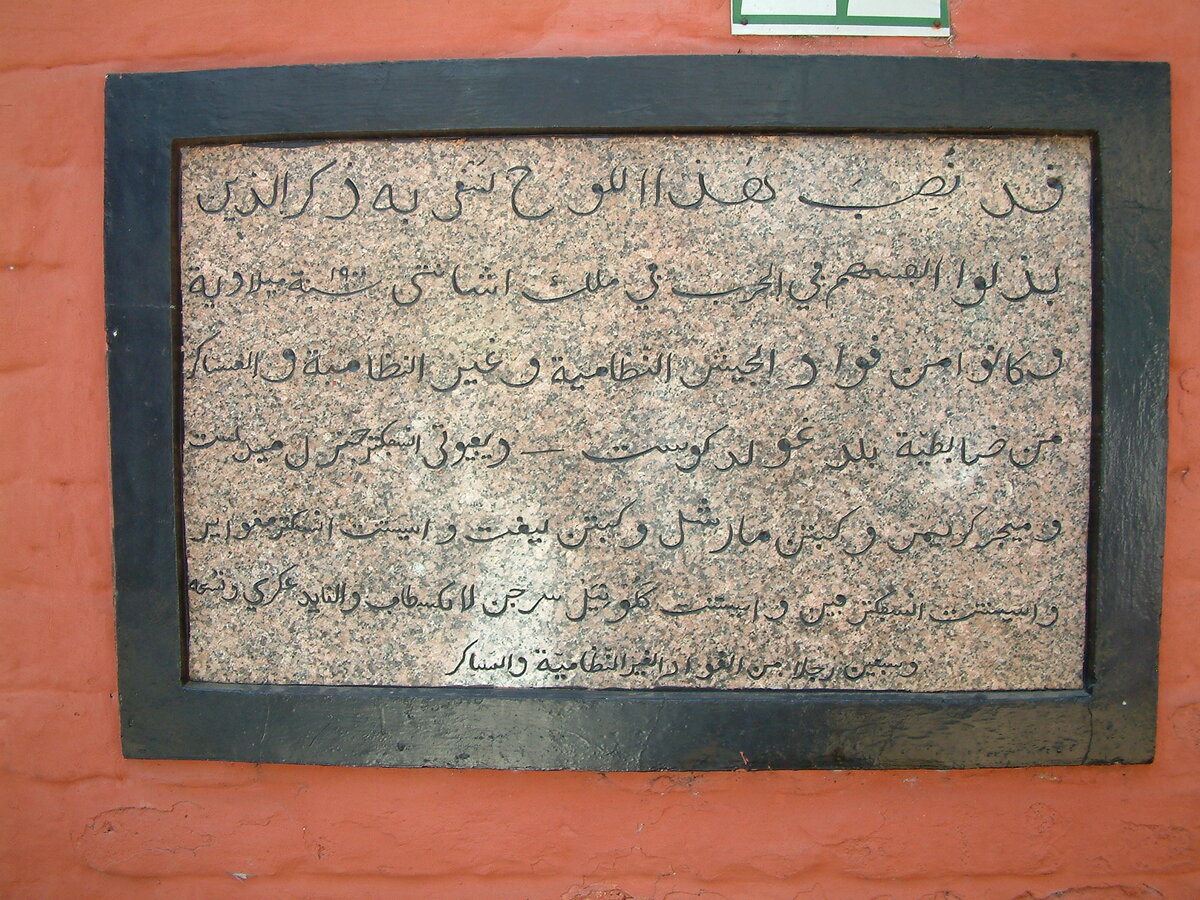 قد نُصِبَ هذا اللوح لتعز به ذكر الذين
بذلوا انفسهم في الحرب في ملك اشانتي سنة ١٩٠٠ ميلادية
وكانوا من قواد الجيش النظامية وغير النظامية والعساكر
من ضابطية بلد غولدكوست — دپيوتي انسپكتر جنرل ميدلست
وميجر كرليمن وكبتن مارشل وكبتن ليفت واسيستنت انسپكتر مغواير
واسيستنت انسپكتر فين واسيستنت سرجن لا والقايد عكري وتسعة
وسبعين رجلا من القواد الغير النظامية والعساكر